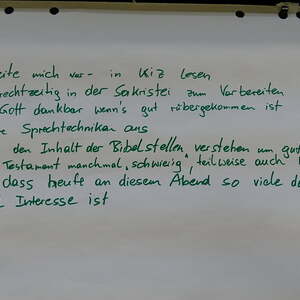 eite mich vor - in KiZ lesen
rechtzeitig in der Sakristei zum Vorbereiten
Gott dankbar wenn's gut rübergekommen ist
e Sprechtechniken aus
den Inhalt der Bibelstellen verstehen um gut
Testament manchmal schwierig, teilweise auch
dass heute an diesem Abend so viele d
Interesse ist